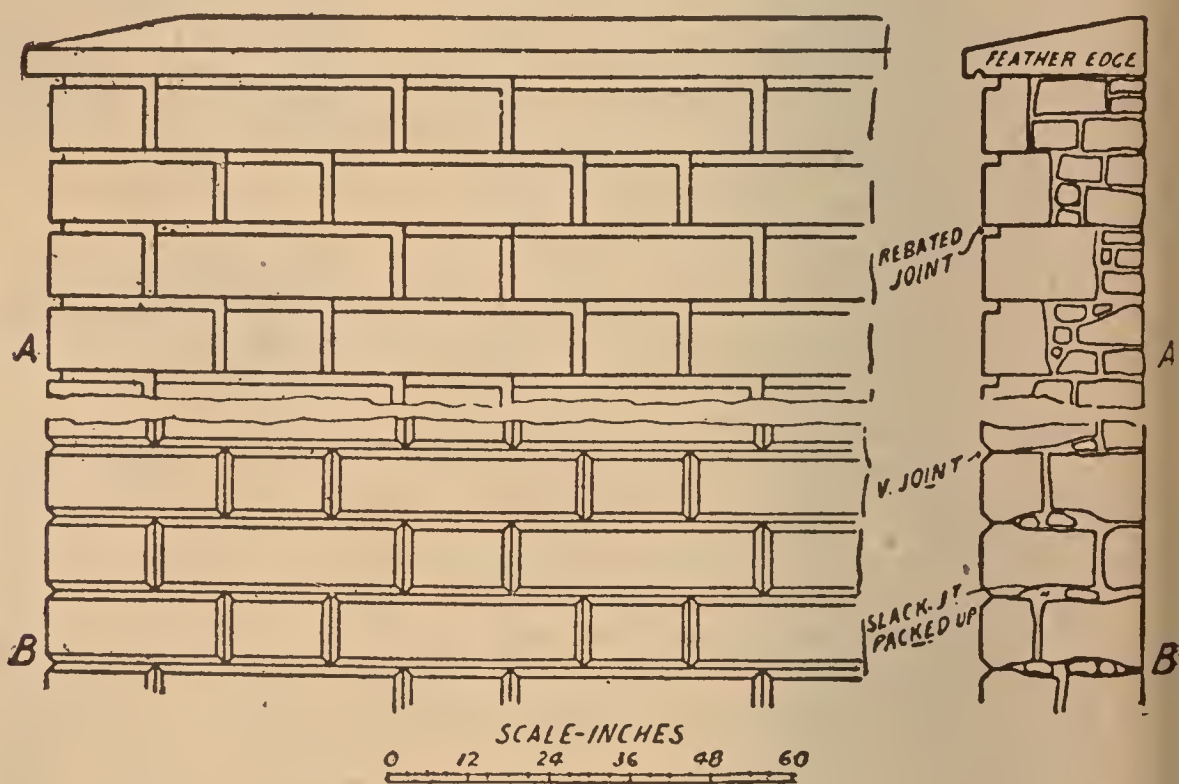 FEATHER EDGE
REBATED
JOINT
A
A
V. JOINT
SLACK-JT
PACKED UP
B
B
SCALE-INCHES
0 12 24 36 48 60